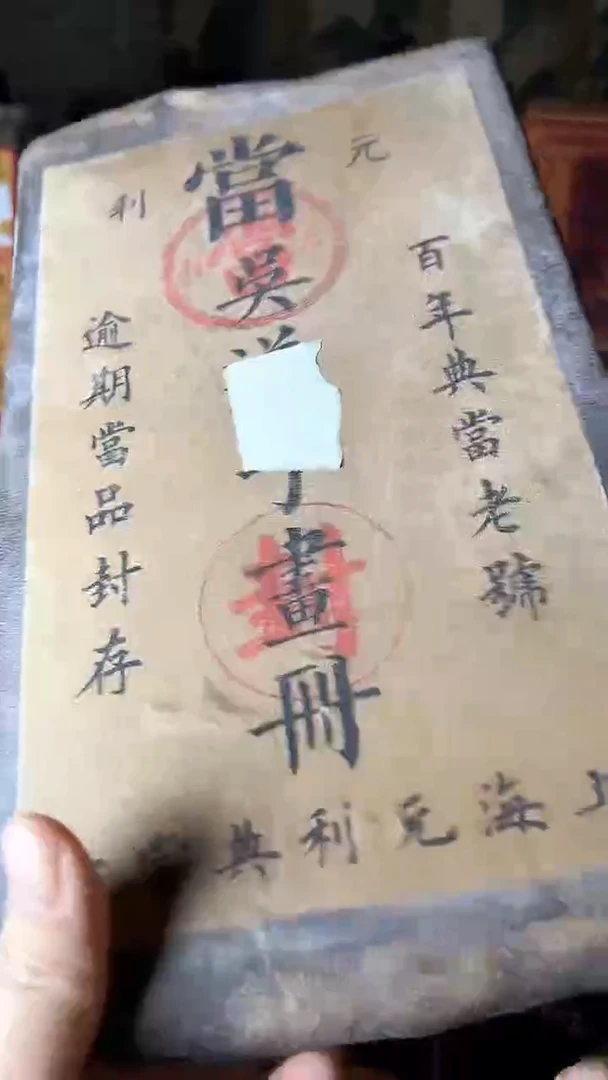 元利
百年典當老號
當吳畫冊
逾期當品封存
上海利典
封